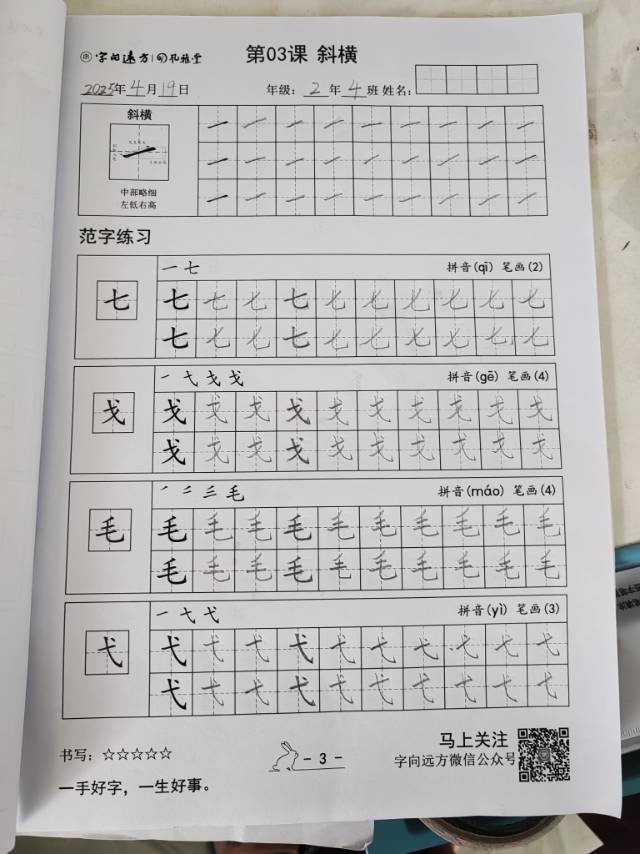 字向远方 孔雅堂
第03课 斜横
2025年4月19日 年级：2年4班 姓名：
斜横
中部略细
左低右高
范字练习
一 七 拼音(qī) 笔画(2)
七 七 七 七 七 七 七 七 七 七 七
七 七 七 七 七 七 七 七 七 七
一 弋 戈 戈 拼音(gē) 笔画(4)
戈 戈 戈 戈 戈 戈 戈 戈 戈 戈 戈
戈 戈 戈 戈 戈 戈 戈 戈 戈 戈
毛 拼音(máo) 笔画(4)
毛 毛 毛 毛 毛 毛 毛 毛 毛 毛 毛
毛 毛 毛 毛 毛 毛 毛 毛 毛 毛
一 弋 弋 拼音(yì) 笔画(3)
弋 弋 弋 弋 弋 弋 弋 弋 弋 弋 弋
弋 弋 弋 弋 弋 弋 弋 弋 弋 弋
书写：☆☆☆☆☆ - 3 - 马上关注
字向远方微信公众号
一手好字，一生好事。